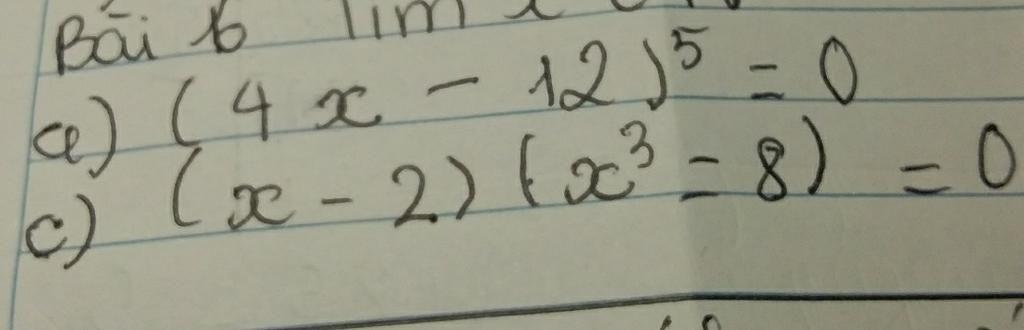 Bài 6 Tìm x
a) (4x - 12)⁵ = 0
c) (x - 2) (x³ = 8) = 0